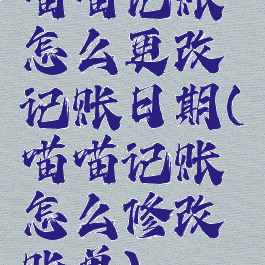 喵喵记账
怎么更改
记账日期(
喵喵记账
怎么修改
账单)